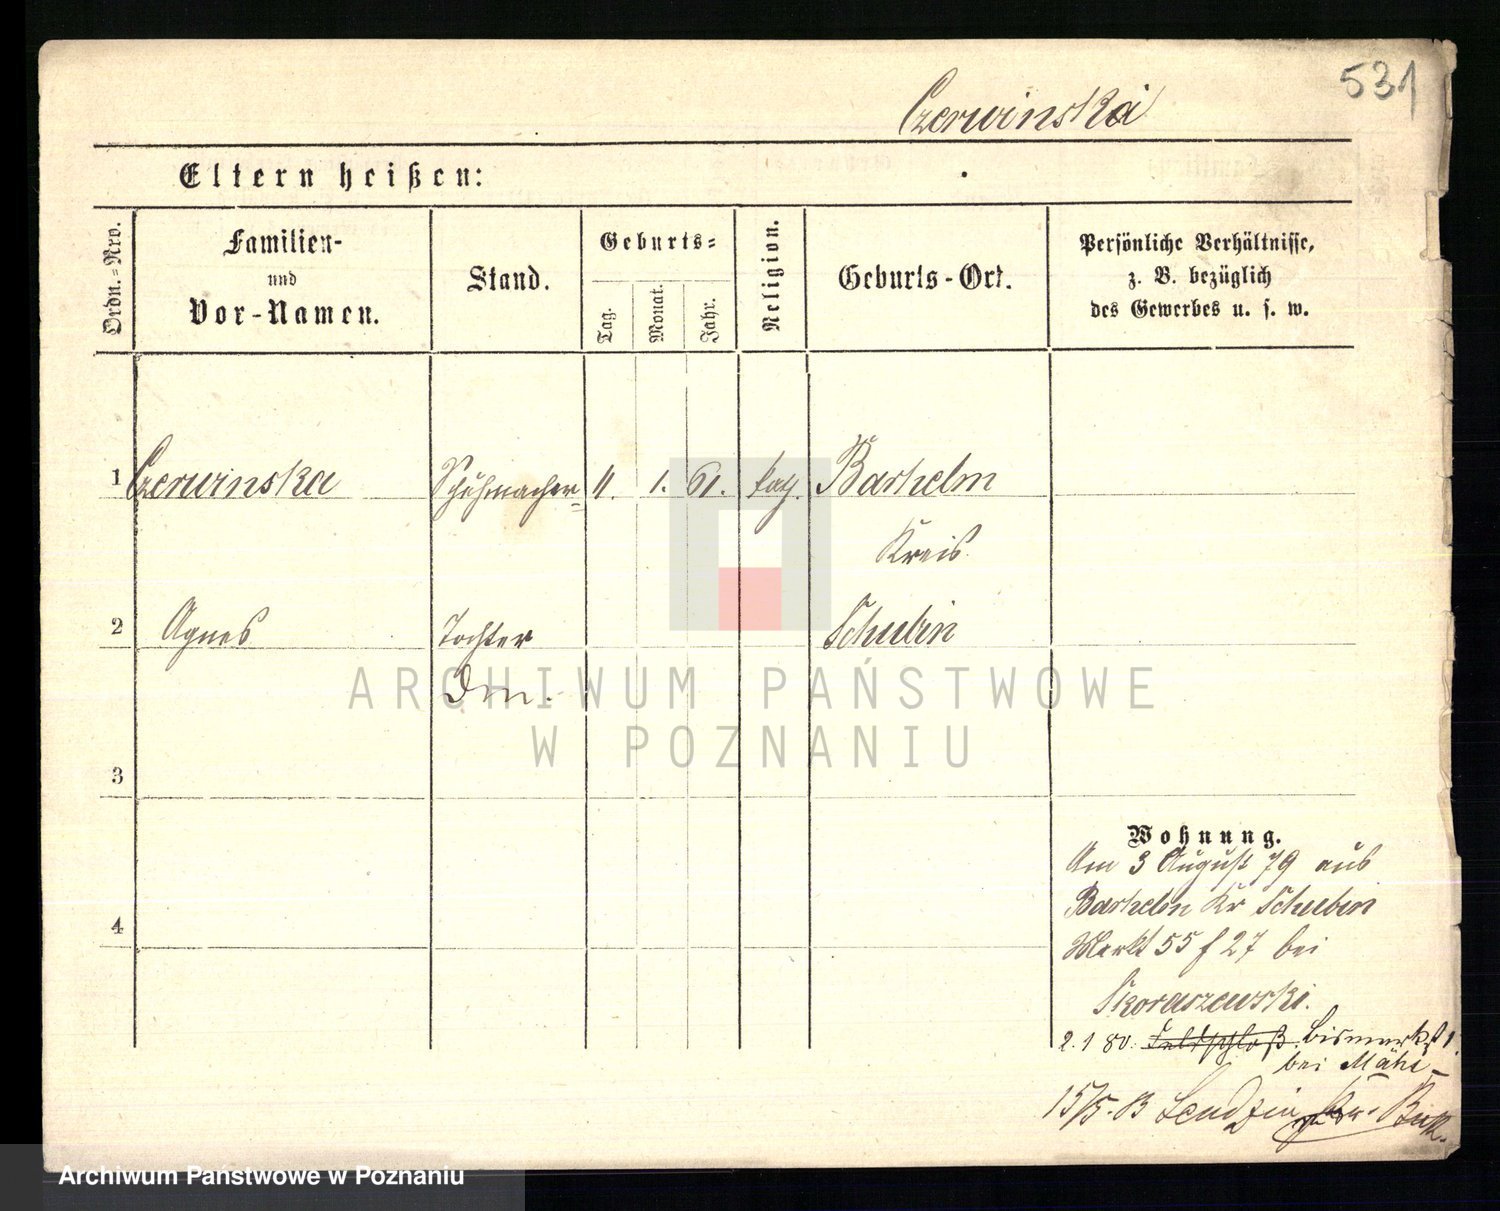 531
Czerwinska
Eltern heißen:
Ordn.=Nro.
Familien-
und
Vor-Namen.
Stand.
Geburts=
Tag.
Monat.
Jahr.
Religion.
Geburts-Ort.
Persönliche Verhältnisse,
z. B. bezüglich
des Gewerbes u. s. w.
1 Czerwinska Schuhmacher= 11. 1. 61. kath. Barhelm
Kreis
2 Agnes Tochter Schubin
Dm.
ARCHIWUM PAŃSTWOWE
W POZNANIU
3
Wohnung.
Am 3 August 79 aus
Barhelm Kr Schubin
4
Markt 55 f 27 bei
Skoraszewski.
2. 1 80. Feldschloß. Bismarkst 1.
bei
15/5. 83 Kr. Buk.
Archiwum Państwowe w Poznaniu